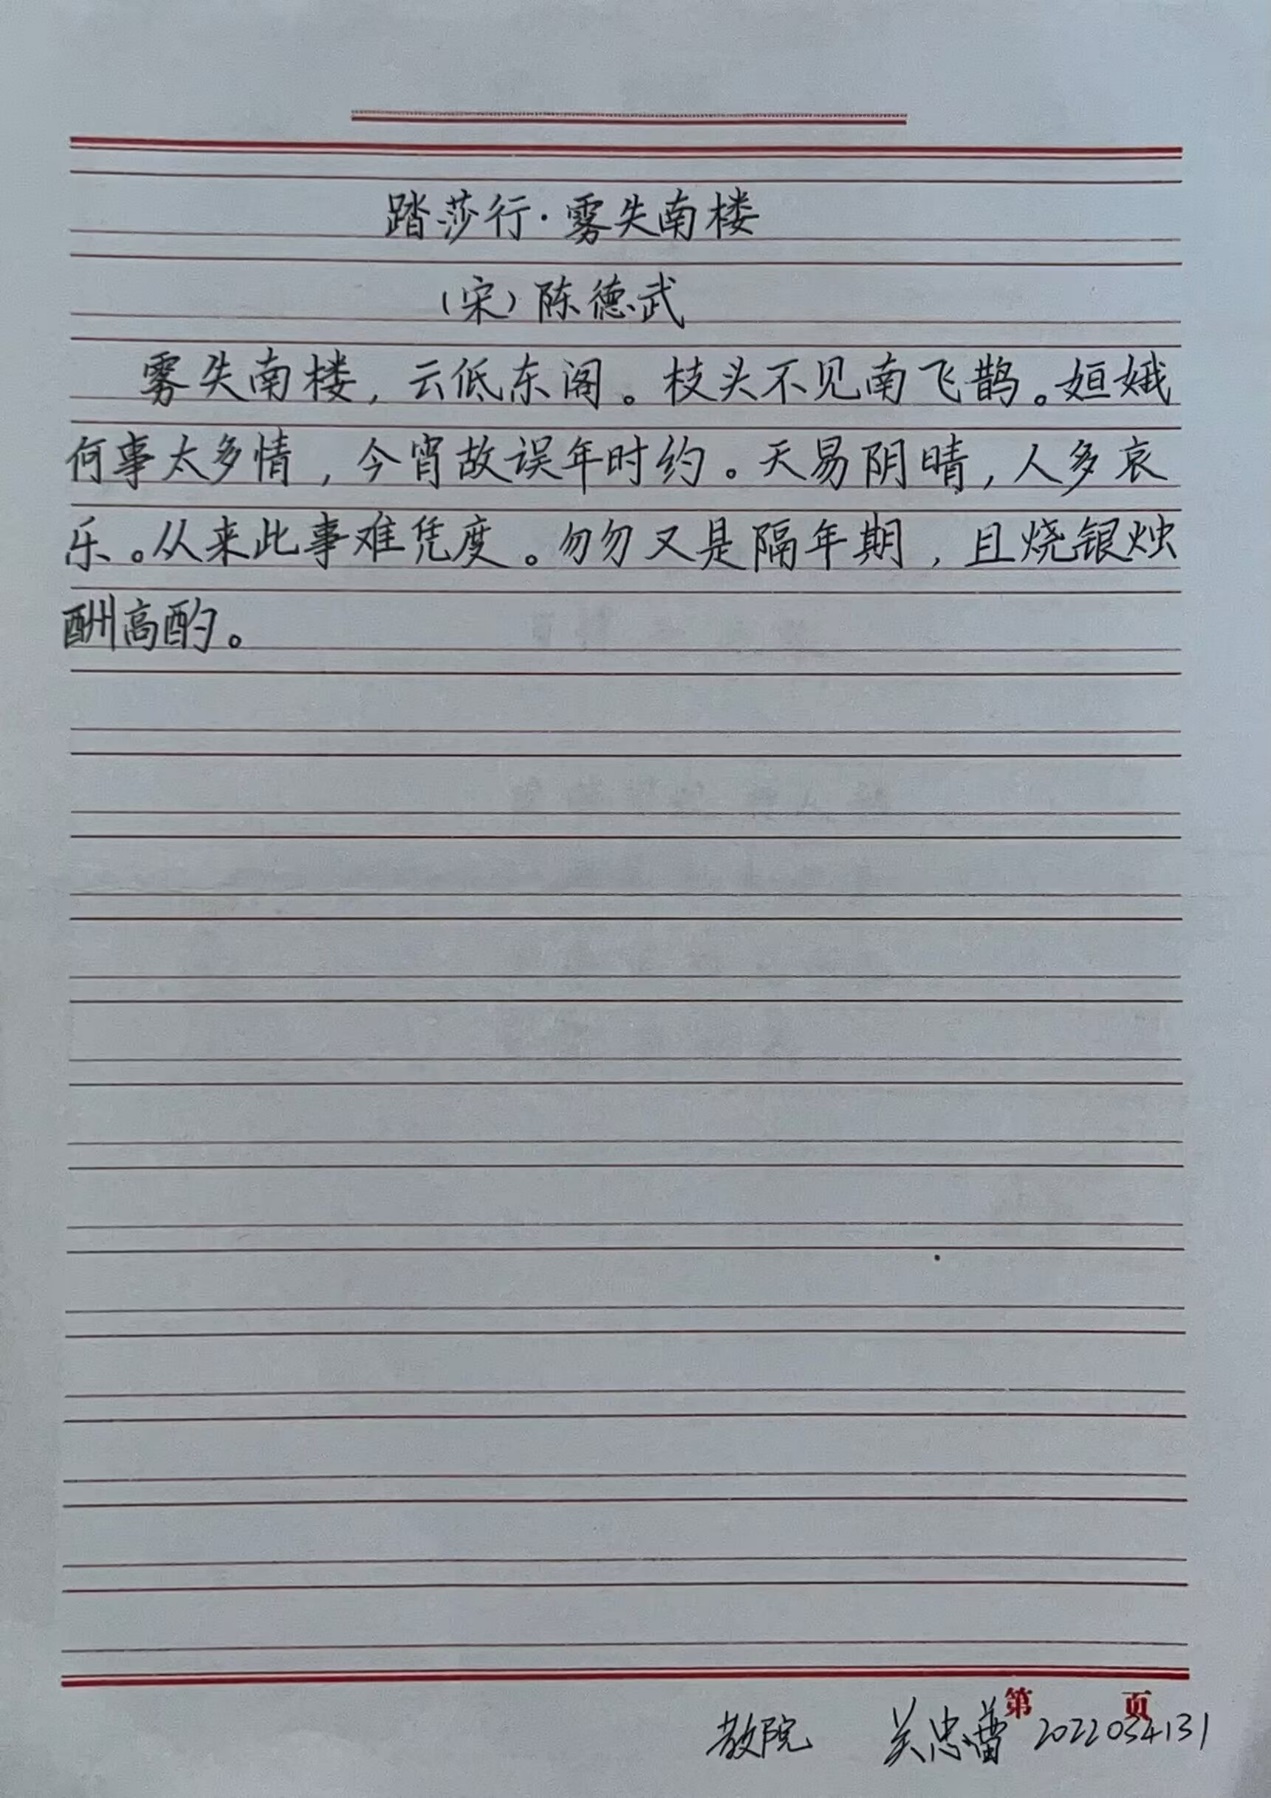 踏莎行·雾失南楼
（宋）陈德武
雾失南楼，云低东阁。枝头不见南飞鹊。姮娥
何事太多情，今宵故误年时约。天易阴晴，人多哀
乐。从来此事难凭度。勿勿又是隔年期，且烧银烛
酬高酌。
第 页
教院 关忠蕾 2022034131